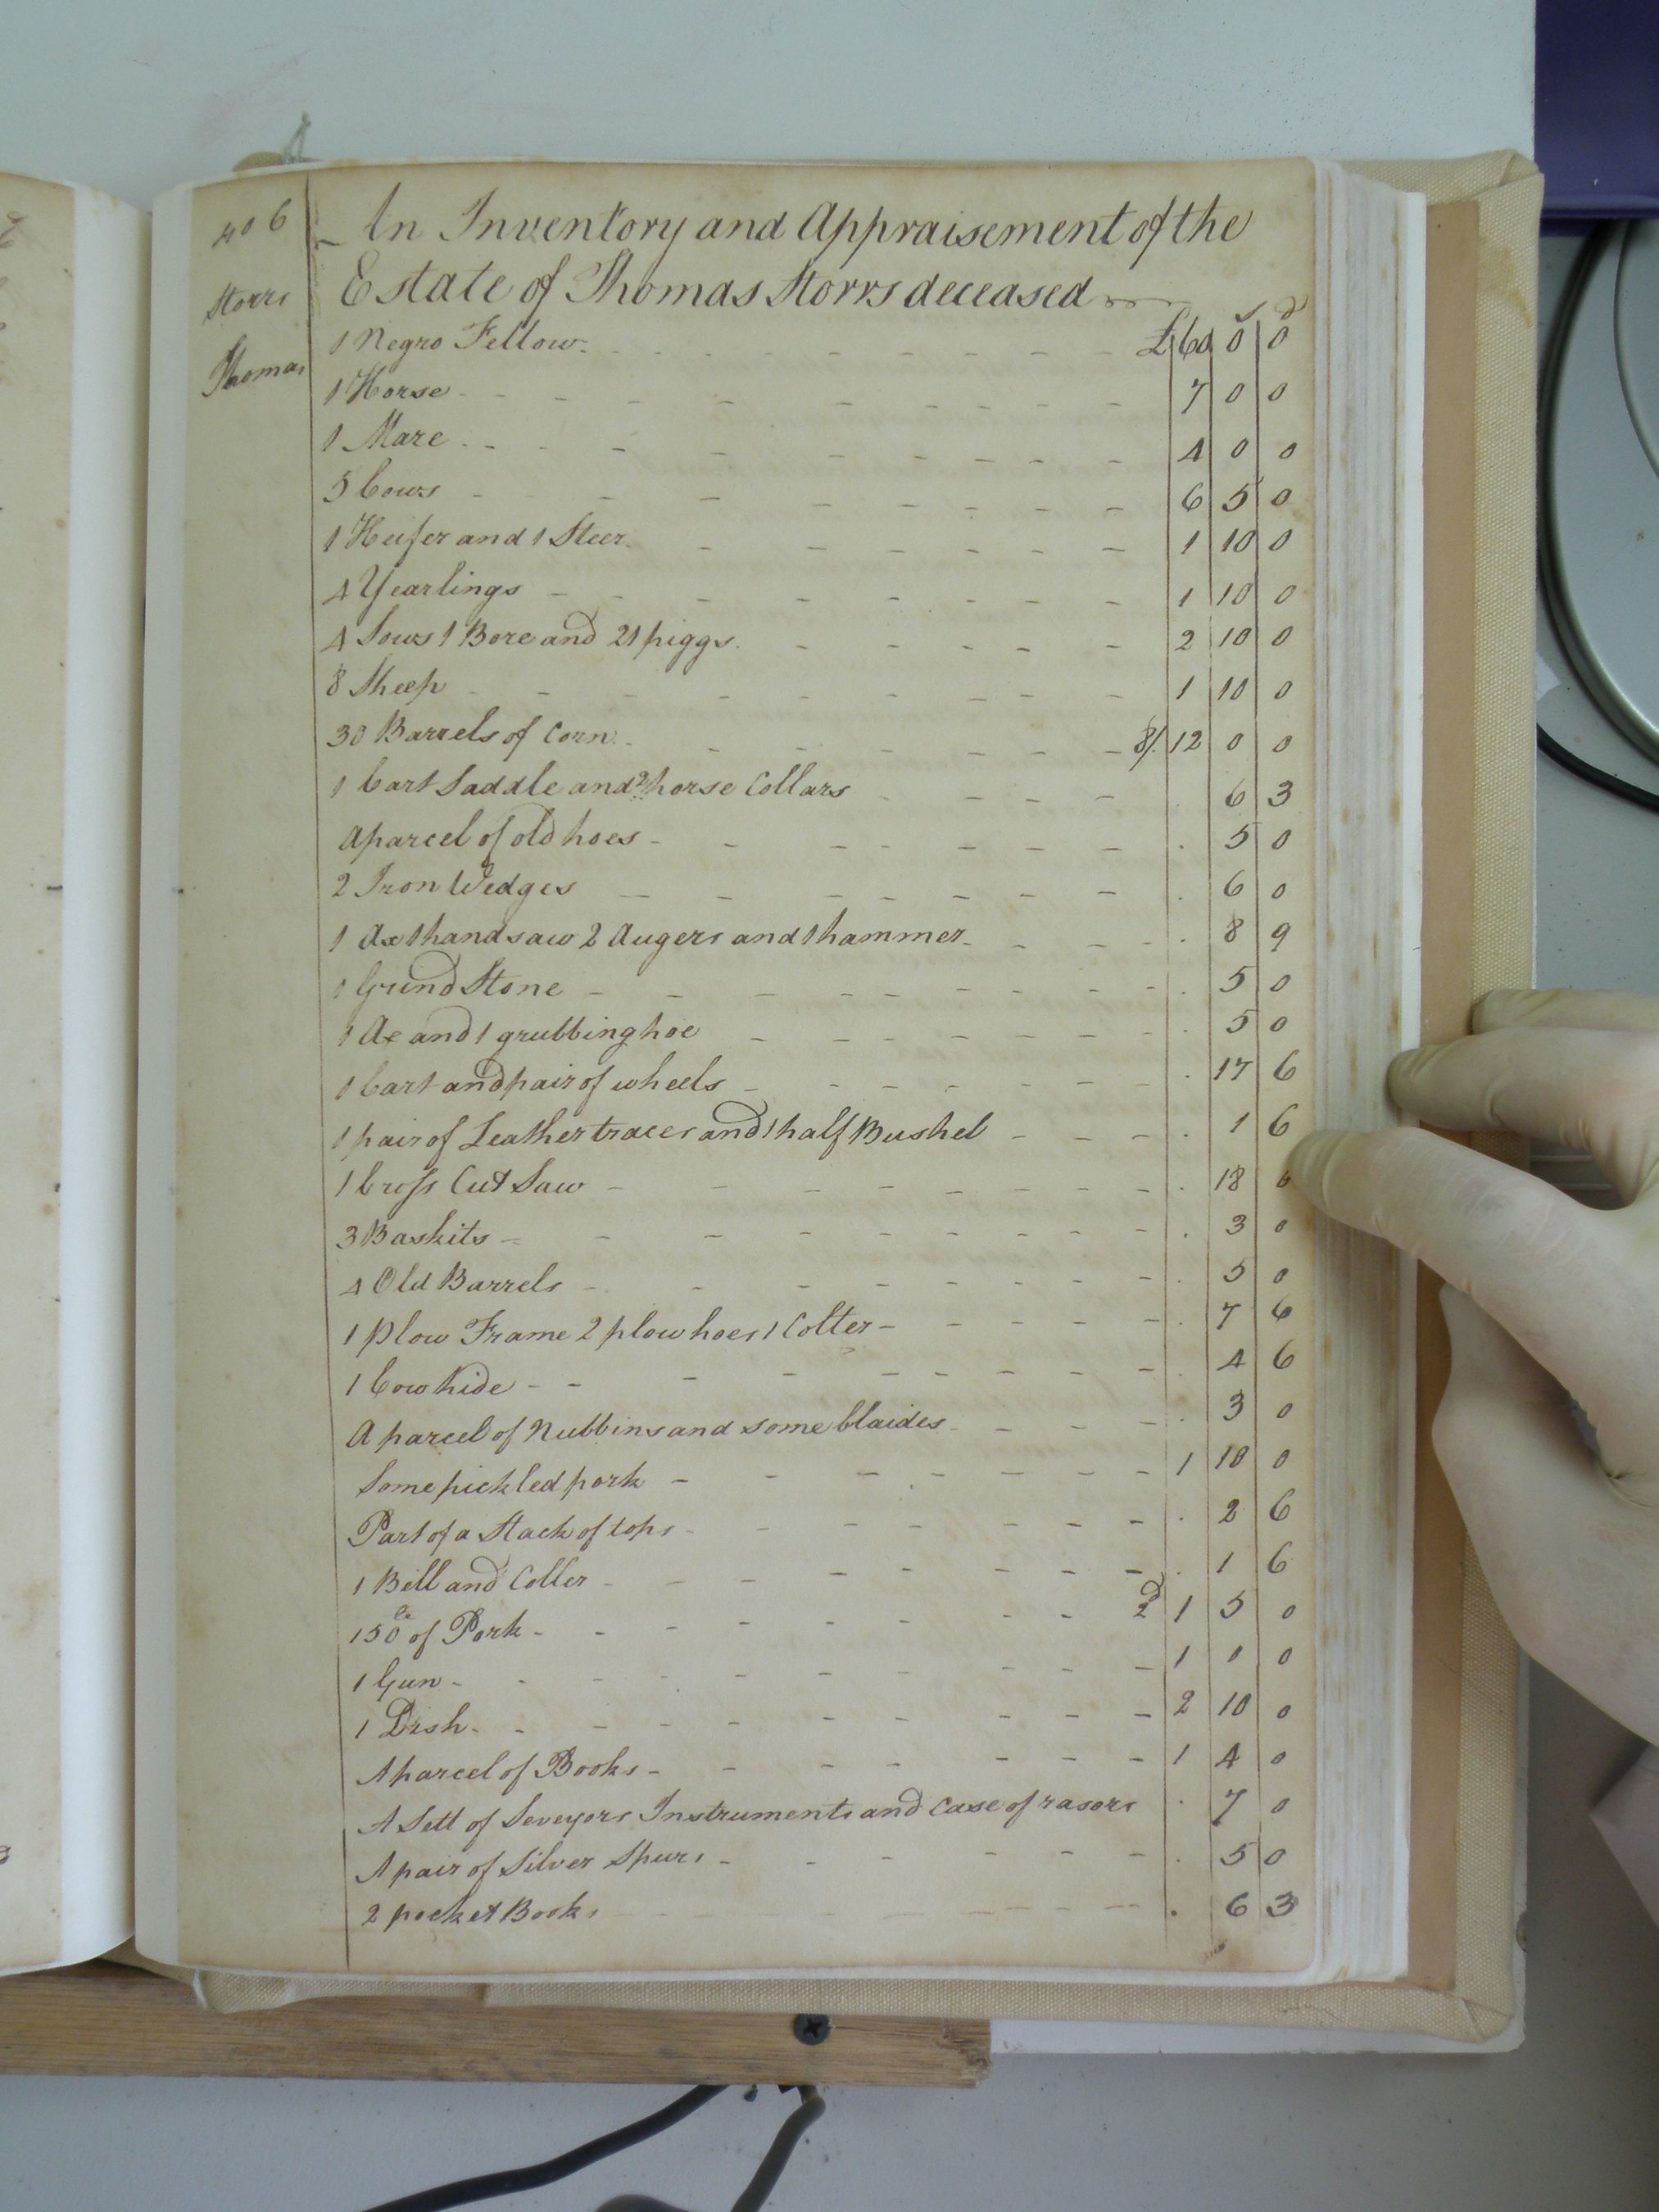 406
Storrs
Thomas
An Inventory and Appraisement of the
Estate of Thomas Storrs deceased
s d
1 Negro Fellow £ 60 0 0
1 Horse 7 0 0
1 Mare 4 0 0
5 Cows 6 5 0
1 Heifer and 1 Steer 1 10 0
4 Yearlings 1 10 0
4 Sows 1 Bore and 21 piggs 2 10 0
8 Sheep 1 10 0
30 Barrels of Corn 8/. 12 0 0
1 Cart Saddle and 2 horse Collars . 6 3
A parcel of old hoes . 5 0
2 Iron Wedges . 6 0
1 Ax 1 hand saw 2 Augers and 1 hammer . 8 9
1 Grind Stone . 5 0
1 Ax and 1 grubbing hoe . 5 0
1 Cart and pair of wheels . 17 6
1 pair of Leather traces and 1 half Bushel . 1 6
1 Cross Cut Saw . 18 6
3 Baskits . 3 0
4 Old Barrels . 5 0
1 Plow Frame 2 plow hoes 1 Colter . 7 6
1 Cow hide . 4 6
A parcel of Nubbins and some blaides . 3 0
Some pickled pork 1 10 0
Part of a Stack of tops . 2 6
1 Bell and Coller . 1 6
150 of Pork 2d 1 5 0
1 Gun 1 0 0
1 Desk 2 10 0
A parcel of Books 1 4 0
A Sett of Seveyors Instruments and Case of rasors . 7 0
A pair of Silver Spurs . 5 0
2 pocket Books . 6 3